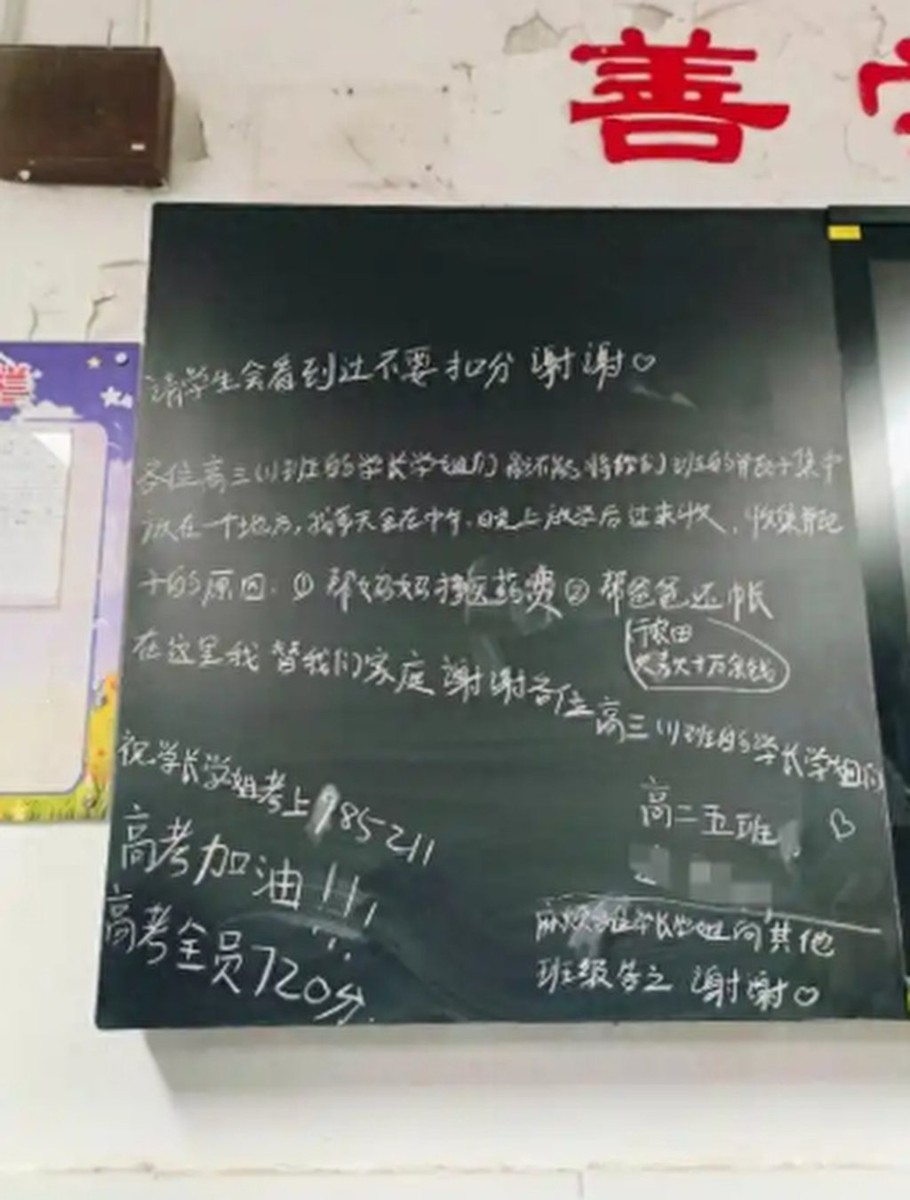 善
请学生会看到过不要扣分 谢谢♡
各位高三(1)班的学长学姐们能不能将你们班的并瓶子集中
放在一个地方,我每天会在中午、晚上放学后过来收,收集瓶
子的原因:① 帮妈妈挣医药费② 帮爸爸还帐
农田
欠十万余钱
在这里我替我们家庭谢谢各位高三(1)班的学长学姐们
祝学长学姐考上985211
高二五班, ♡
高考加油!!!
高考全员720分.
麻烦各位学长学姐向其他
班级告之 谢谢♡